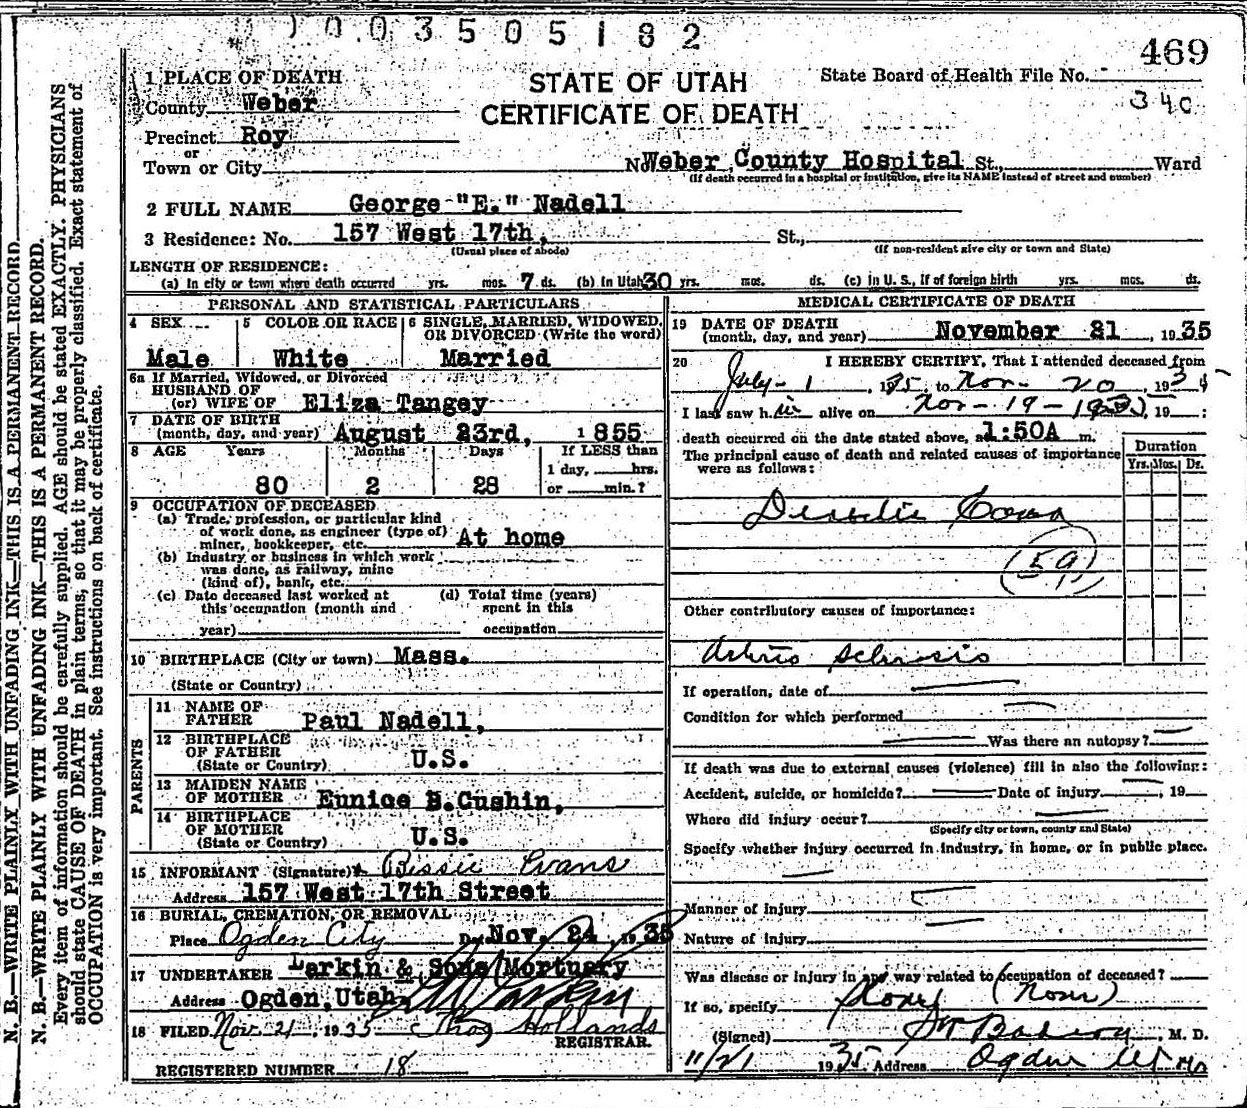 1003505182
469
STATE OF UTAH
CERTIFICATE OF DEATH
State Board of Health File No.
34c
1 PLACE OF DEATH
County Weber
Precinct Roy
or
Town or City
No. Weber County Hospital St., Ward
(If death occurred in a hospital or institution, give its NAME instead of street and number)
2 FULL NAME George "E." Nadell
3 Residence: No. 157 West 17th, St.,
(Usual place of abode) (If non-resident give city or town and State)
LENGTH OF RESIDENCE:
(a) In city or town where death occurred yrs. mos. 7 ds. (b) In Utah 30 yrs. mos. ds. (c) In U. S., if of foreign birth yrs. mos. ds.
PERSONAL AND STATISTICAL PARTICULARS
4 SEX 5 COLOR OR RACE 6 SINGLE, MARRIED, WIDOWED, OR DIVORCED (Write the word)
Male White Married
6a If Married, Widowed, or Divorced
HUSBAND OF
(or) WIFE OF Eliza Tangey
7 DATE OF BIRTH
(month, day, and year) August 23rd, 1855
8 AGE Years Months Days If LESS than
1 day, hrs.
80 2 28 or min.?
9 OCCUPATION OF DECEASED
(a) Trade, profession, or particular kind
of work done, as engineer (type of)
miner, bookkeeper, etc. At home
(b) Industry or business in which work
was done, as railway, mine
(kind of), bank, etc.
(c) Date deceased last worked at
this occupation (month and
year)
(d) Total time (years)
spent in this
occupation
10 BIRTHPLACE (City or town) Mass.
(State or Country)
PARENTS
11 NAME OF
FATHER Paul Nadell,
12 BIRTHPLACE
OF FATHER
(State or Country) U.S.
13 MAIDEN NAME
OF MOTHER Eunice B.Cushin,
14 BIRTHPLACE
OF MOTHER
(State or Country) U.S.
15 INFORMANT (Signature) Bessie Evans
Address 157 West 17th Street
16 BURIAL, CREMATION, OR REMOVAL
Place Ogden City Date Nov. 24 1935
17 UNDERTAKER Larkin & Sons Mortuary
Address Ogden, Utah
18 FILED Nov. 21, 1935 Thos Hollands
REGISTRAR.
REGISTERED NUMBER 18
MEDICAL CERTIFICATE OF DEATH
19 DATE OF DEATH
(month, day, and year) November 21, 1935
20 I HEREBY CERTIFY, That I attended deceased from
July - 1, 1935, to Nov - 20, 1935
I last saw him alive on Nov - 19 - 1935, 19 :
death occurred on the date stated above, at 1:50A m.
The principal cause of death and related causes of importance
were as follows:
Duration
Yrs. Mos. Ds.
Coma
(59)
Other contributory causes of importance:
If operation, date of
Condition for which performed
Was there an autopsy?
If death was due to external causes (violence) fill in also the following:
Accident, suicide, or homicide? Date of injury , 19
Where did injury occur?
(Specify city or town, county and State)
Specify whether injury occurred in industry, in home, or in public place.
Manner of injury
Nature of injury
Was disease or injury in any way related to occupation of deceased?
If so, specify None (None)
(Signed) , M. D.
11/21 1935 Address Ogden Ut
N. B.—WRITE PLAINLY WITH UNFADING INK—THIS IS A PERMANENT RECORD.
N. B.—WRITE PLAINLY WITH UNFADING INK—THIS IS A PERMANENT RECORD.
Every item of information should be carefully supplied. AGE should be stated EXACTLY. PHYSICIANS
should state CAUSE OF DEATH in plain terms, so that it may be properly classified. Exact statement of
OCCUPATION is very important. See instructions on back of certificate.